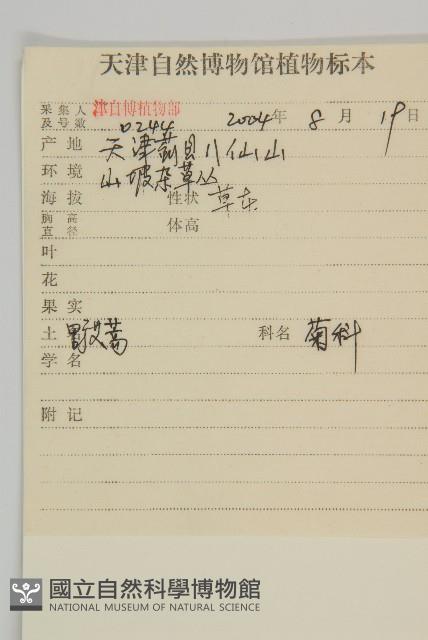 天津自然博物馆植物标本
采集人及号数 津自博植物部 0244 2004年 8月 19日
产地 天津蓟县八仙山
环境 山坡杂草丛
海拔 性状 草本
胸高直径 体高
叶
花
果实
土名 野艾蒿 科名 菊科
学名
附记
國立自然科學博物館
NATIONAL MUSEUM OF NATURAL SCIENCE